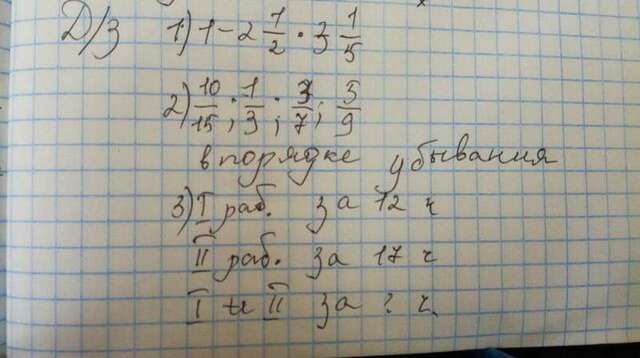 Д/З 1) 1 - 2 1/2 · 3 1/5
2) 10/15 ; 1/3 ; 3/7 ; 5/9
в порядке убывания
3) I раб. за 12 ч
II раб. за 17 ч
I и II за ? ч.